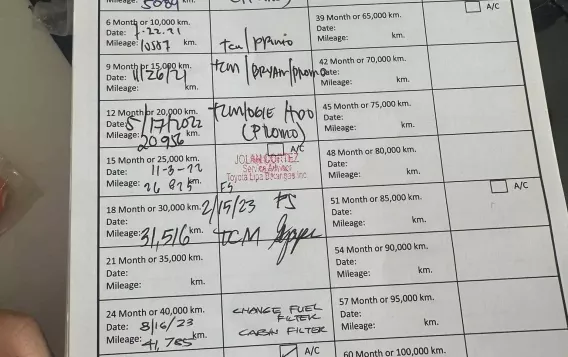 Mileage: 5084 km.
6 Month or 10,000 km.
Date: 7.22.21
Mileage: 10587 km.
tcm/
9 Month or 15,000 km.
Date: 11/26/21
Mileage: km.
tcm/BRYAN/promo
12 Month or 20,000 km.
Date: 5/17/2022
Mileage: 20956 km.
TCM/OGIE 400
(PROMO)
15 Month or 25,000 km.
Date: 11-3-22
Mileage: 26 825 km.
A/C
JOLAN CORTEZ
Service Advisor
Toyota Lipa Batangas Inc.
FS
18 Month or 30,000 km.
Date: 2/15/23 FS
Mileage: 31,516 km. TCM
21 Month or 35,000 km.
Date:
Mileage: km.
24 Month or 40,000 km.
Date: 8/16/23
Mileage: 41,785 km.
CHANGE FUEL
FILTER
CABIN FILTER
A/C
39 Month or 65,000 km.
Date:
Mileage: km.
A/C
42 Month or 70,000 km.
Date:
Mileage: km.
45 Month or 75,000 km.
Date:
Mileage: km.
48 Month or 80,000 km.
Date:
Mileage: km.
A/C
51 Month or 85,000 km.
Date:
Mileage: km.
54 Month or 90,000 km.
Date:
Mileage: km.
57 Month or 95,000 km.
Date:
Mileage: km.
60 Month or 100,000 km.